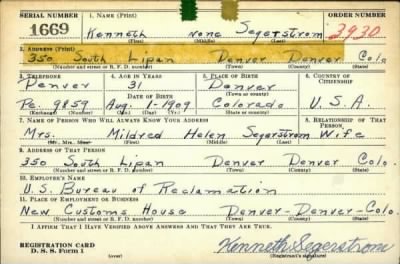 SERIAL NUMBER 1. NAME (Print) ORDER NUMBER
1669 Kenneth none Segerstrom 3930
(First) (Middle) (Last)
2. ADDRESS (Print)
350 South Lipan Denver Denver Colo
(Number and street or R. F. D. number) (Town) (County) (State)
3. TELEPHONE 4. AGE IN YEARS 5. PLACE OF BIRTH 6. COUNTRY OF CITIZENSHIP
Denver 31 Denver
DATE OF BIRTH (Town or county)
Pe. 9859 Aug. 1-1909 Colorado U.S.A.
(Exchange) (Number) (Mo.) (Day) (Yr.) (State or country)
7. NAME OF PERSON WHO WILL ALWAYS KNOW YOUR ADDRESS 8. RELATIONSHIP OF THAT PERSON
Mrs. Mildred Helen Segerstrom Wife
(Mr., Mrs., Miss) (First) (Middle) (Last)
9. ADDRESS OF THAT PERSON
350 South Lipan Denver Denver Colo.
(Number and street or R. F. D. number) (Town) (County) (State)
10. EMPLOYER'S NAME
U.S. Bureau of Reclamation
11. PLACE OF EMPLOYMENT OR BUSINESS
New Customs House Denver-Denver-Colo.
(Number and street or R. F. D. number) (Town) (County) (State)
I AFFIRM THAT I HAVE VERIFIED ABOVE ANSWERS AND THAT THEY ARE TRUE.
REGISTRATION CARD
D. S. S. Form 1
Kenneth Segerstrom
(Registrant's signature)